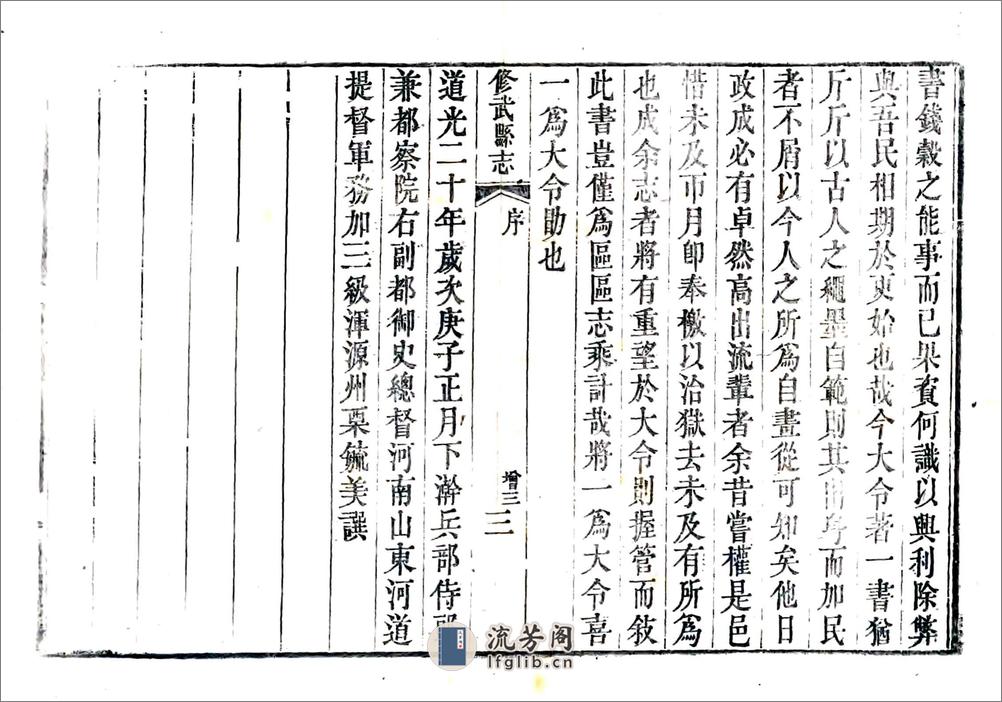 書錢穀之能事而已果資何識以興利除弊
與吾民相期於更始也哉今大令著一書猶
斤斤以古人之繩墨自範則其出身而加民
者不屑以今人之所爲自畫從可知矣他日
政成必有卓然高出流輩者余昔嘗權是邑
惜未及帀月卽奉檄以治獄去未及有所爲
也成余志者將有重望於大令則握管而敍
此書豈僅爲區區志乘計哉將一爲大令喜
一爲大令勖也
修武縣志
序
增三
三
道光二十年歲次庚子正月下澣兵部侍郎
兼都察院右副都御史總督河南山東河道
提督軍務加三級渾源州栗毓美譔
流芳阁
lfglib.cn